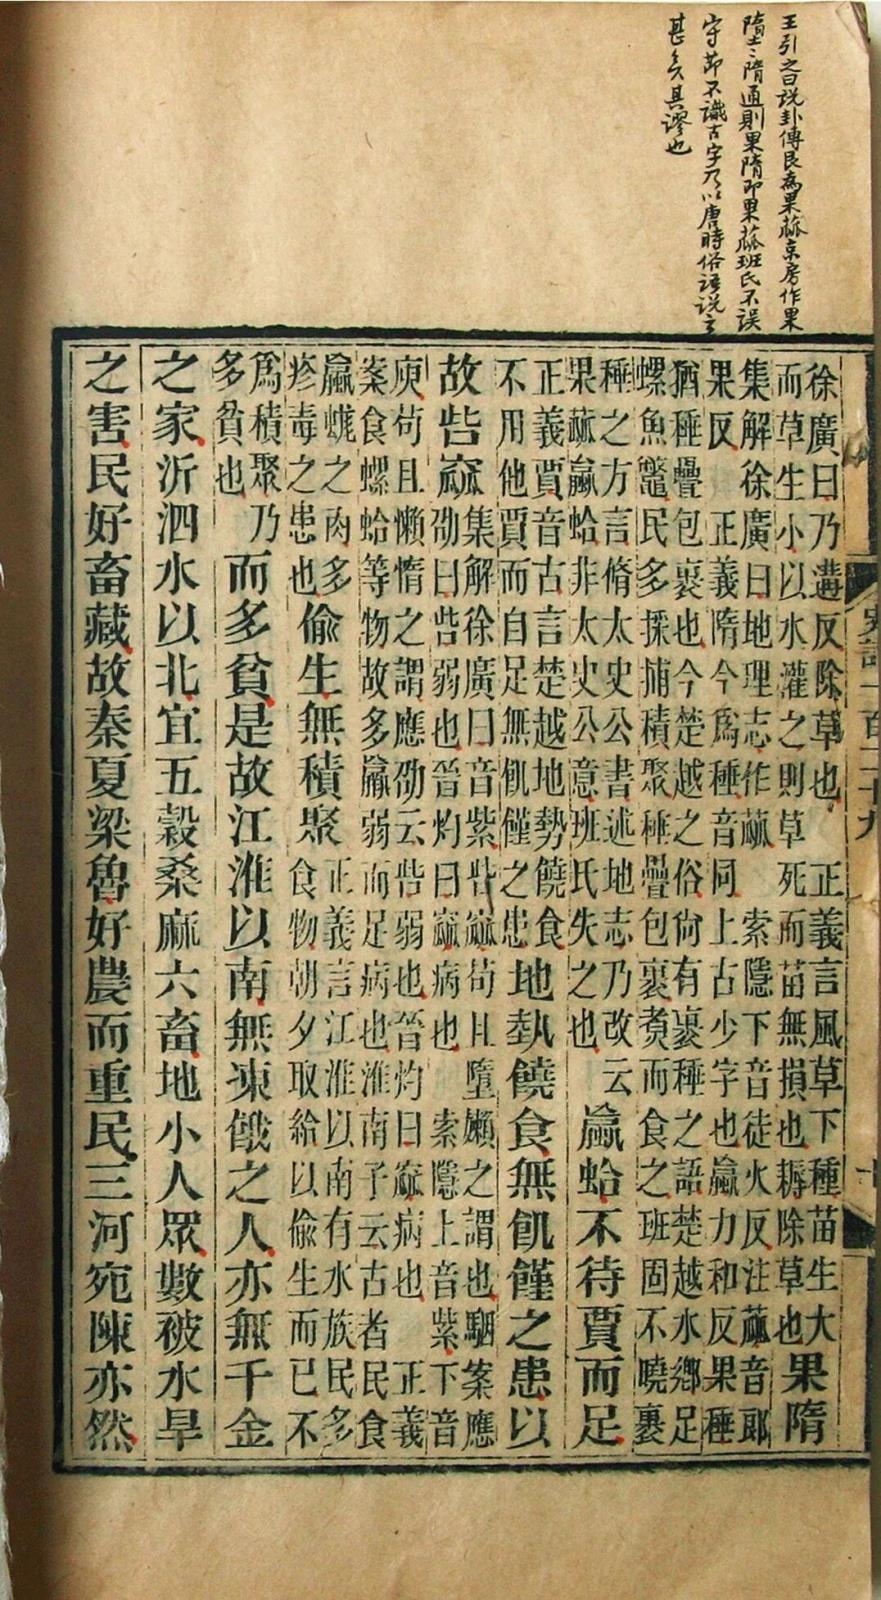 王引之曰説卦傳艮為果蓏京房作果
墮〻隋通則果隋即果蓏班氏不誤
守節不識古字乃以唐時俗語説之
甚矣其謬也
史記一百二十九
徐廣曰乃遘反除草也　正義言風草下種苗生大
而草生小以水灌之則草死而苗無損也耨除草也
果隋
集解徐廣曰地理志作蓏　索隱下音徒火反注蓏音郎
果反　正義隋今爲種音同上古少字也蠃力和反果種
猶種疊包裹也今楚越之俗尙有裹種之語楚越水鄉足
螺魚鼈民多採捕積聚種疊包裹煑而食之班固不曉裹
種之方言脩太史公書述地志乃改云
果蓏蠃蛤非太史公意班氏失之也
蠃蛤不待賈而足
正義賈音古言楚越地勢饒食
不用他賈而自足無飢饉之患
地埶饒食無飢饉之患以
故呰窳
集解徐廣曰音紫呰窳苟且墮嬾之謂也駰案應
劭曰呰弱也晉灼曰窳病也　索隱上音紫下音
庾苟且懶惰之謂應劭云呰弱也晉灼曰窳病也　正義
案食螺蛤等物故多羸弱而足病也淮南子云古者民食
蠃蠬之肉多
疹毒之患也
偷生無積聚
正義言江淮以南有水族民多
食物朝夕取給以偷生而已不
爲積聚乃
多貧也
而多貧是故江淮以南無凍餓之人亦無千金
之家沂泗水以北宜五穀桑麻六畜地小人眾數被水旱
之害民好畜藏故秦夏梁魯好農而重民三河宛陳亦然